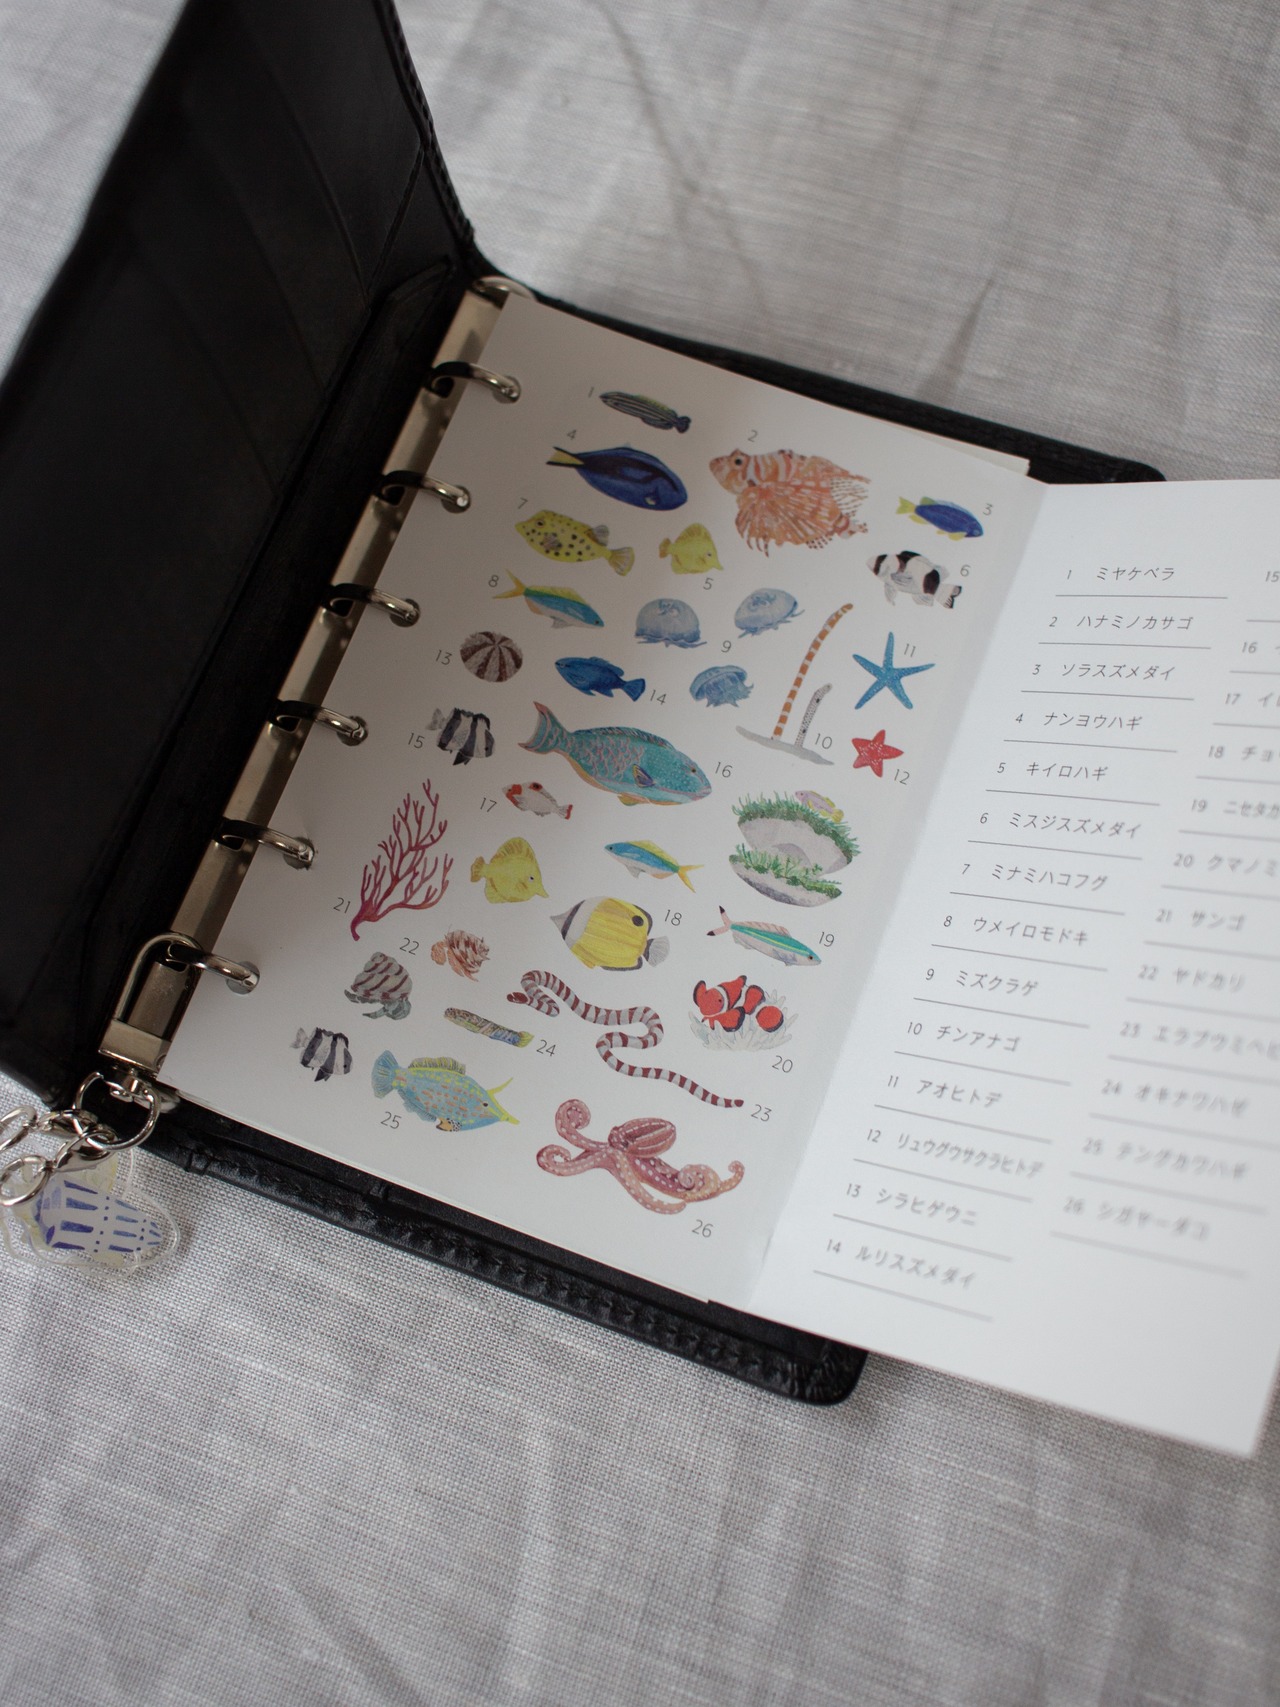 1
2
3
4
5
6
7
8
9
10
11
12
13
14
15
16
17
18
19
20
21
22
23
24
25
26
1 ミヤケベラ
2 ハナミノカサゴ
3 ソラスズメダイ
4 ナンヨウハギ
5 キイロハギ
6 ミスジスズメダイ
7 ミナミハコフグ
8 ウメイロモドキ
9 ミズクラゲ
10 チンアナゴ
11 アオヒトデ
12 リュウグウサクラヒトデ
13 シラヒゲウニ
14 ルリスズメダイ
15
16
17
18 チョ
19 ニセタカ
20 クマノミ
21 サンゴ
22 ヤドカリ
23 エラブウミヘビ
24 オキナワハゼ
25 テングカワハギ
26 シガヤーダコ